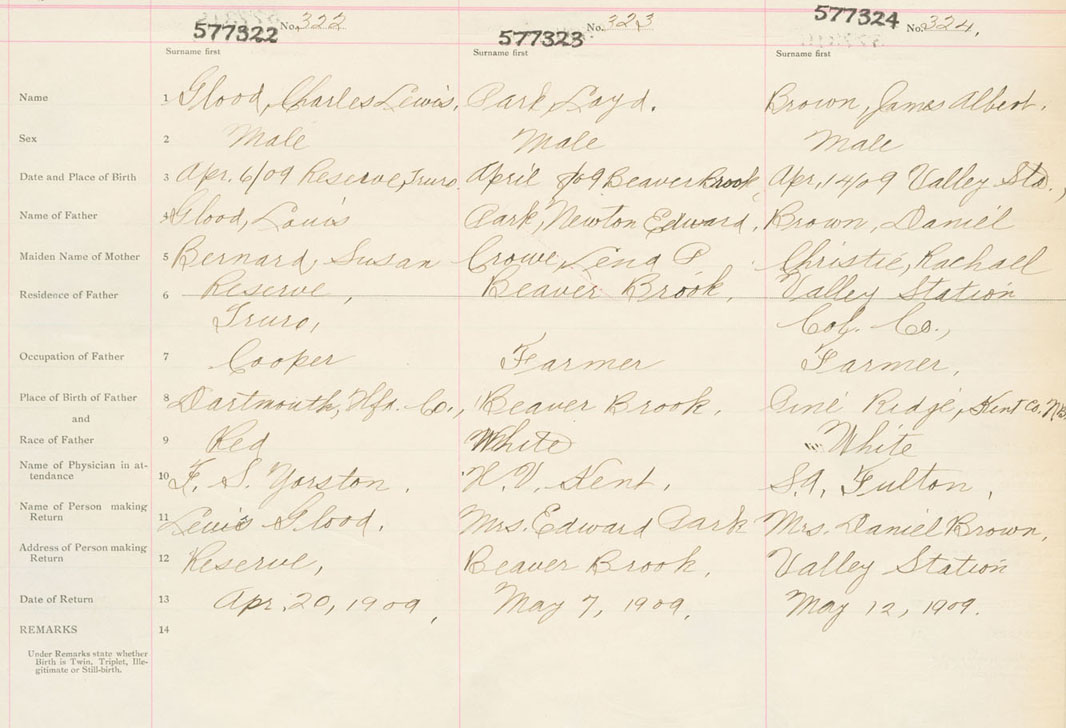 577322 No. 322
577323 No. 323
577324 No. 324.
Surname first Surname first Surname first
Name 1 Glood, Charles Lewis. Park, Loyd. Brown, James Albert.
Sex 2 Male Male Male
Date and Place of Birth 3 Apr. 6/09 Reserve, Truro. April 8/09 Beaver Brook, Apr. 14/09 Valley Sta.,
Name of Father 4 Glood, Louis Park, Newton Edward, Brown, Daniel
Maiden Name of Mother 5 Bernard, Susan Crowe, Lena P Christie, Rachael
Residence of Father 6 Reserve, Beaver Brook, Valley Station
Truro, Col. Co.,
Occupation of Father 7 Cooper Farmer Farmer,
Place of Birth of Father 8 Dartmouth, Hfx. Co., Beaver Brook, Pine Ridge, Kent Co. N.B.
and
Race of Father 9 Red White White
Name of Physician in at-
tendance 10 F. S. Yorston. H. V. Kent. S.A. Fulton,
Name of Person making
Return 11 Lewis Glood. Mrs. Edward Park Mrs. Daniel Brown,
Address of Person making
Return 12 Reserve, Beaver Brook, Valley Station
Date of Return 13 Apr. 20, 1909, May 7, 1909, May 12, 1909.
REMARKS 14
Under Remarks state whether
Birth is Twin, Triplet, Ille-
gitimate or Still-birth.